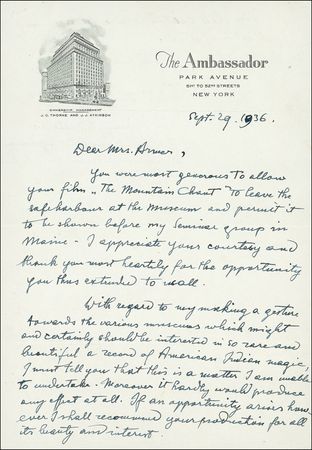 The Ambassador
PARK AVENUE
51ST TO 52ND STREETS
NEW YORK
OWNERSHIP MANAGEMENT
J. C. THORNE AND J. J. ATKINSON
Sept. 29. 1936.
Dear Mrs. Armer,
You were most generous to allow
your film "The Mountain Chant" to leave the
safe harbour at the Museum and permit it
to be shown before my Seminar group in
Maine - I appreciate your courtesy and
thank you most heartily for the opportunity
you thus extended to us all.
With regard to my making a gesture
towards the various museums which might
and certainly should be interested in so rare and
beautiful a record of American Indian magic,
I must tell you that this is a matter I am unable
to undertake. Moreover it hardly would produce
any effect at all. If an opportunity arises how
ever I shall recommend your production for all
its beauty and interest.